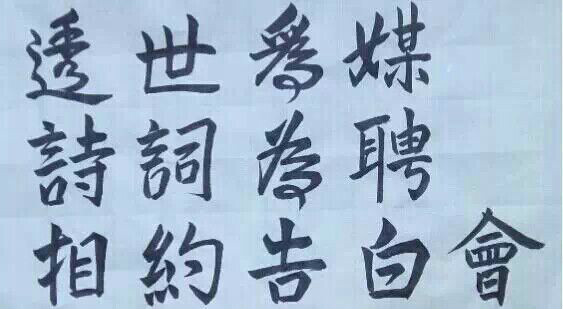 透世爲媒
詩詞為聘
相約告白會